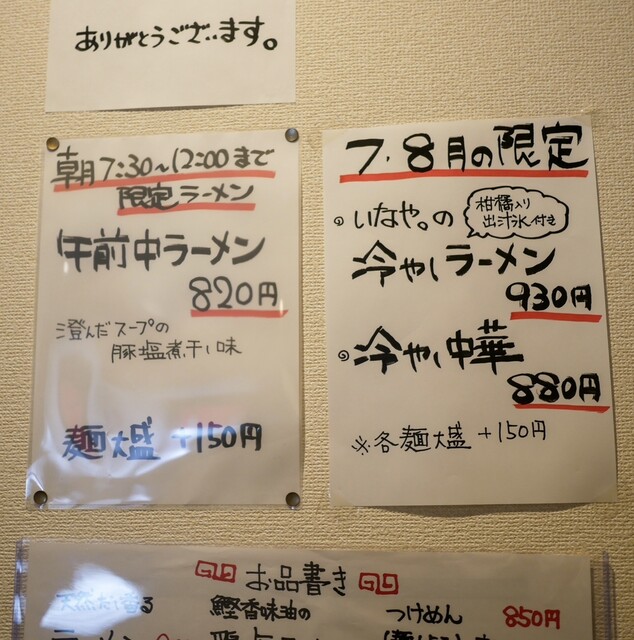 ありがとうございます。
朝7:30~12:00まで
限定ラーメン
午前中ラーメン
820円
澄んだスープの
豚塩煮干し味
麺大盛 +150円
7・8月の限定
いなや。の
柑橘入り
出汁氷付き
冷やしラーメン
930円
冷やし中華
880円
※各麺大盛 +150円
お品書き
鰹香味油の
つけめん 850円